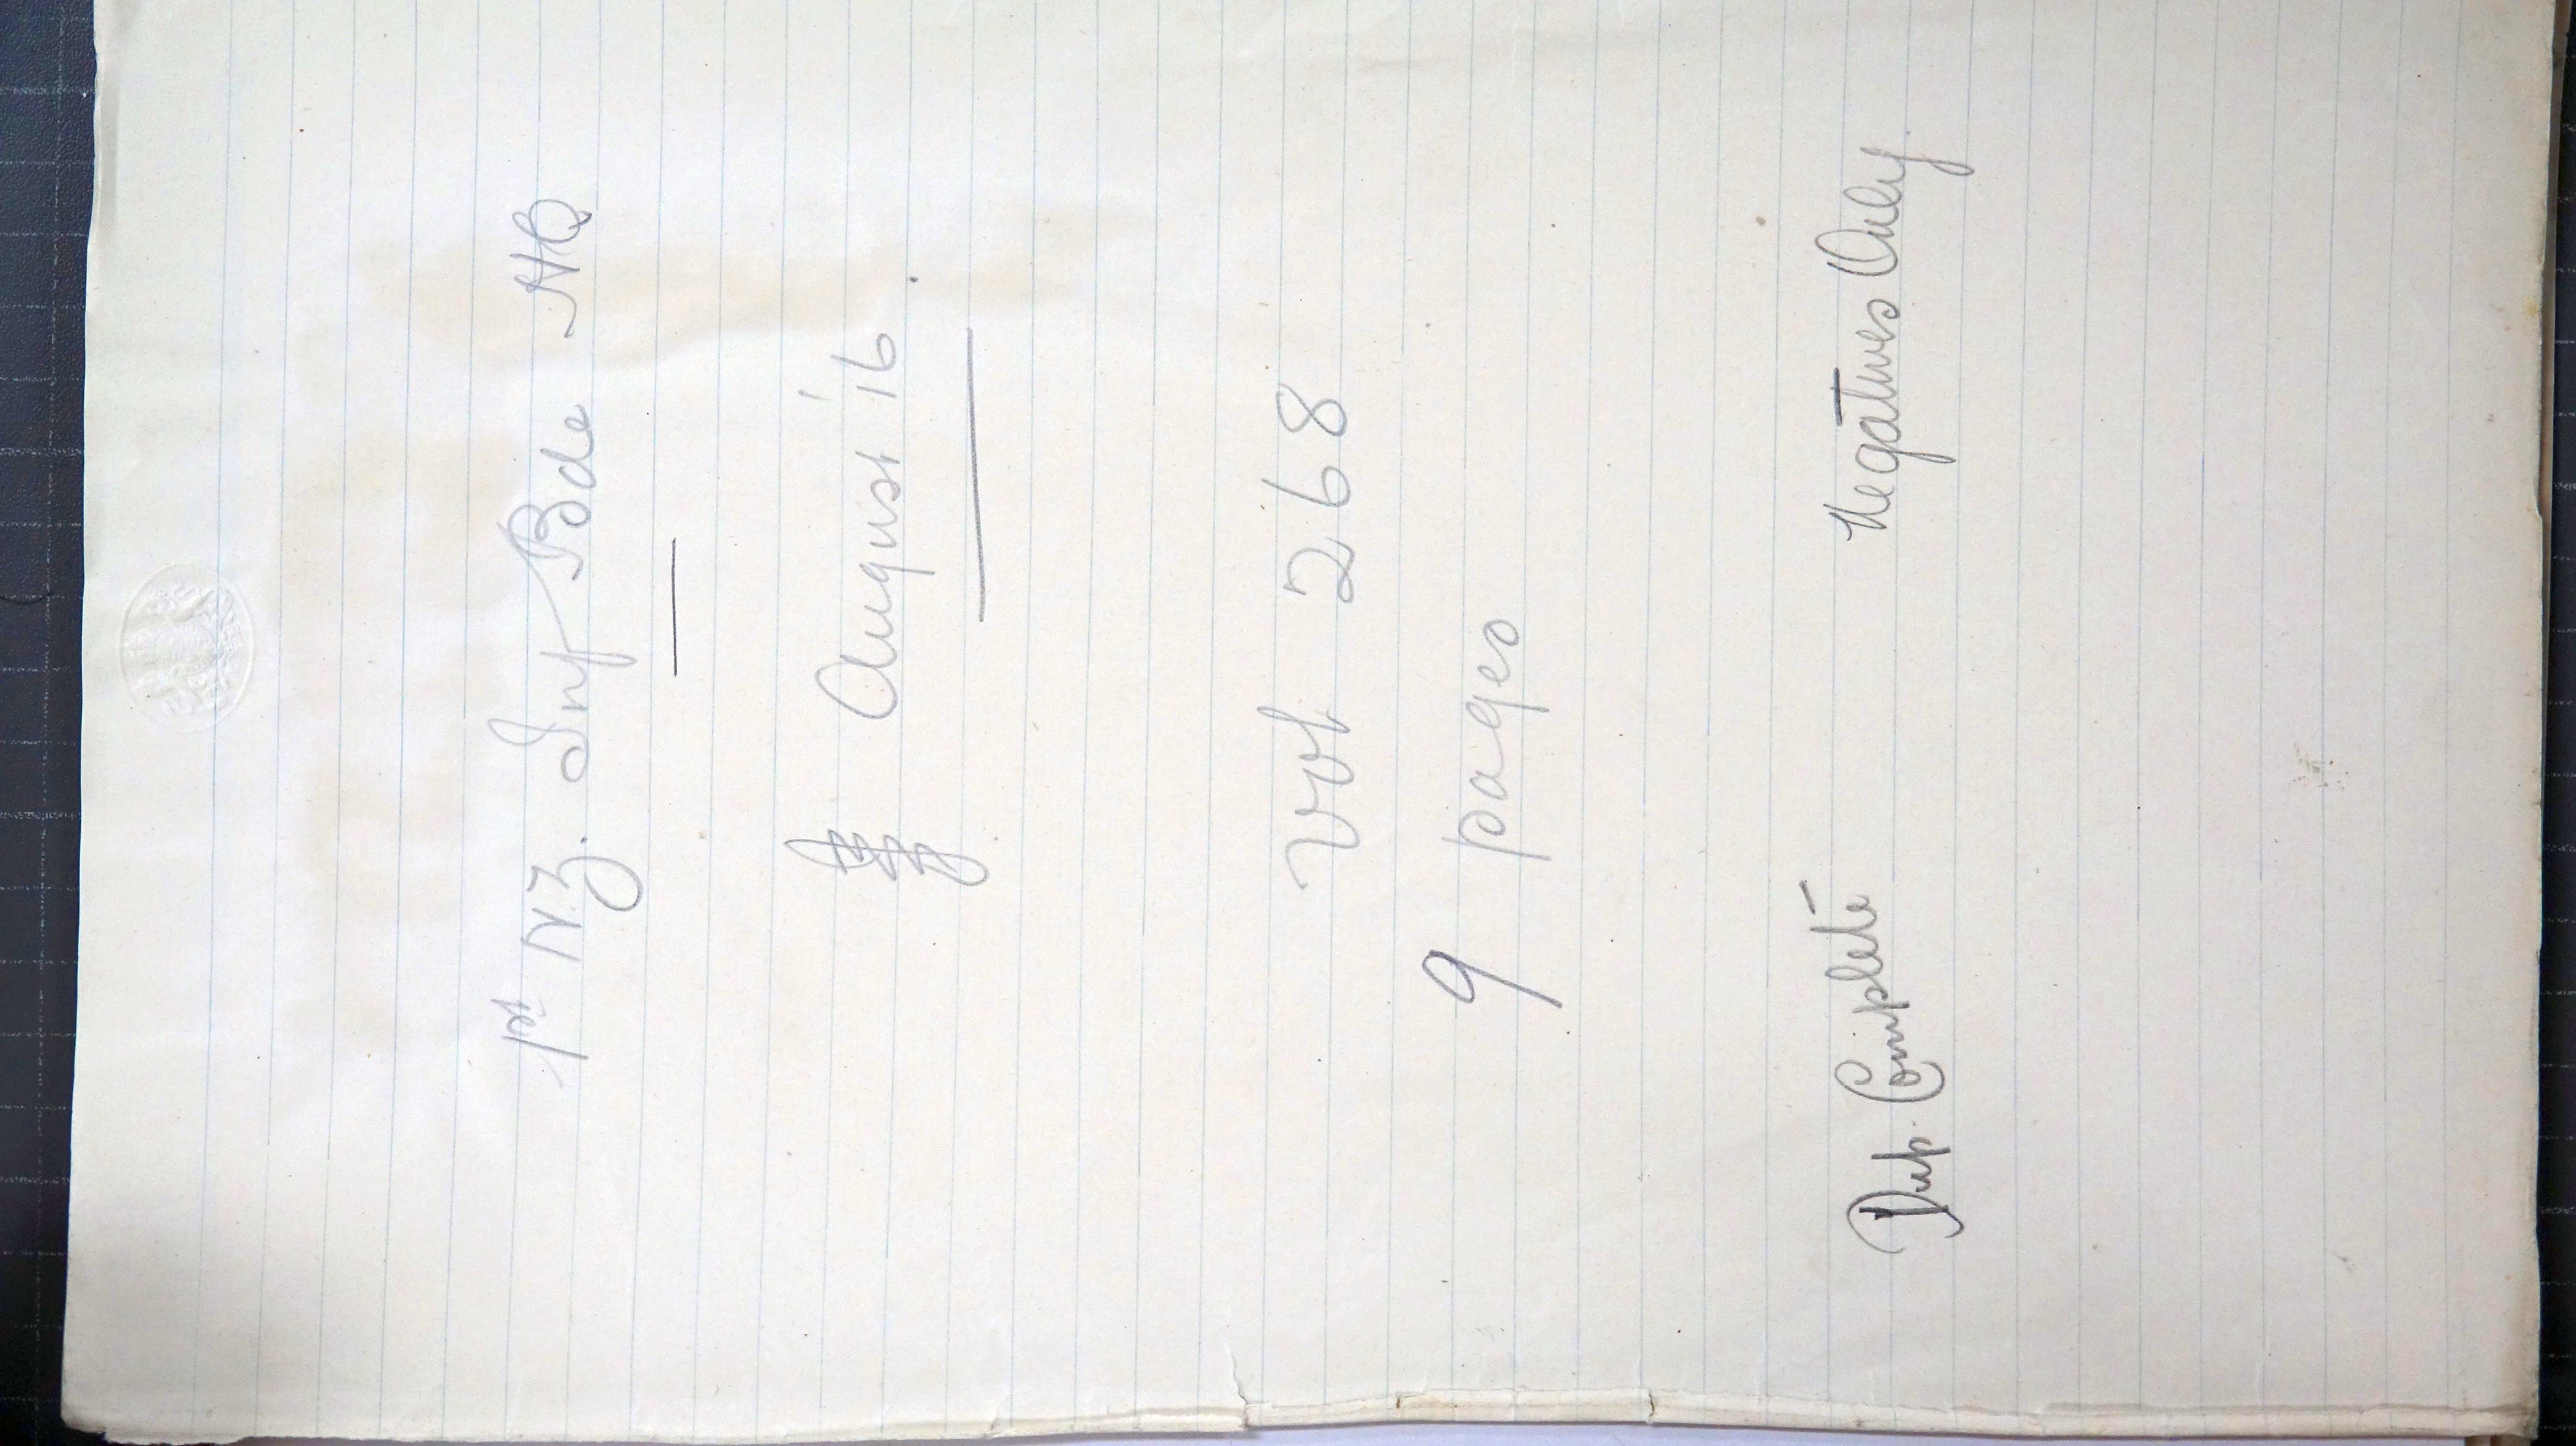 1st N.Z. Inf Bde HQ
August '16.
Vol 268
9 pages
Dup. Complete Negatives Only